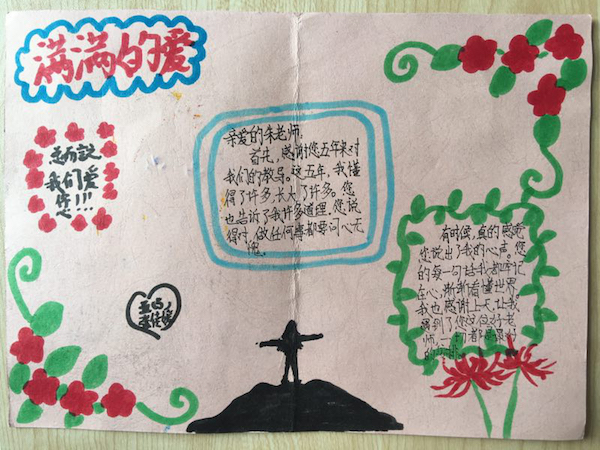 满满的爱
亲爱的朱老师：
首先，感谢您五年来对
我们的教导。这五年，我懂
得了许多，长大了许多。您
也告诉了我许多道理，您说
得对，做任何事都要问心无
愧。
我们爱
你!!!
有时候，真的感觉
您说出了我的心声。您
的每一句话我都牢记
在心，渐渐看懂世界。
我也感谢上天，让我
遇到了您这位好老
师。